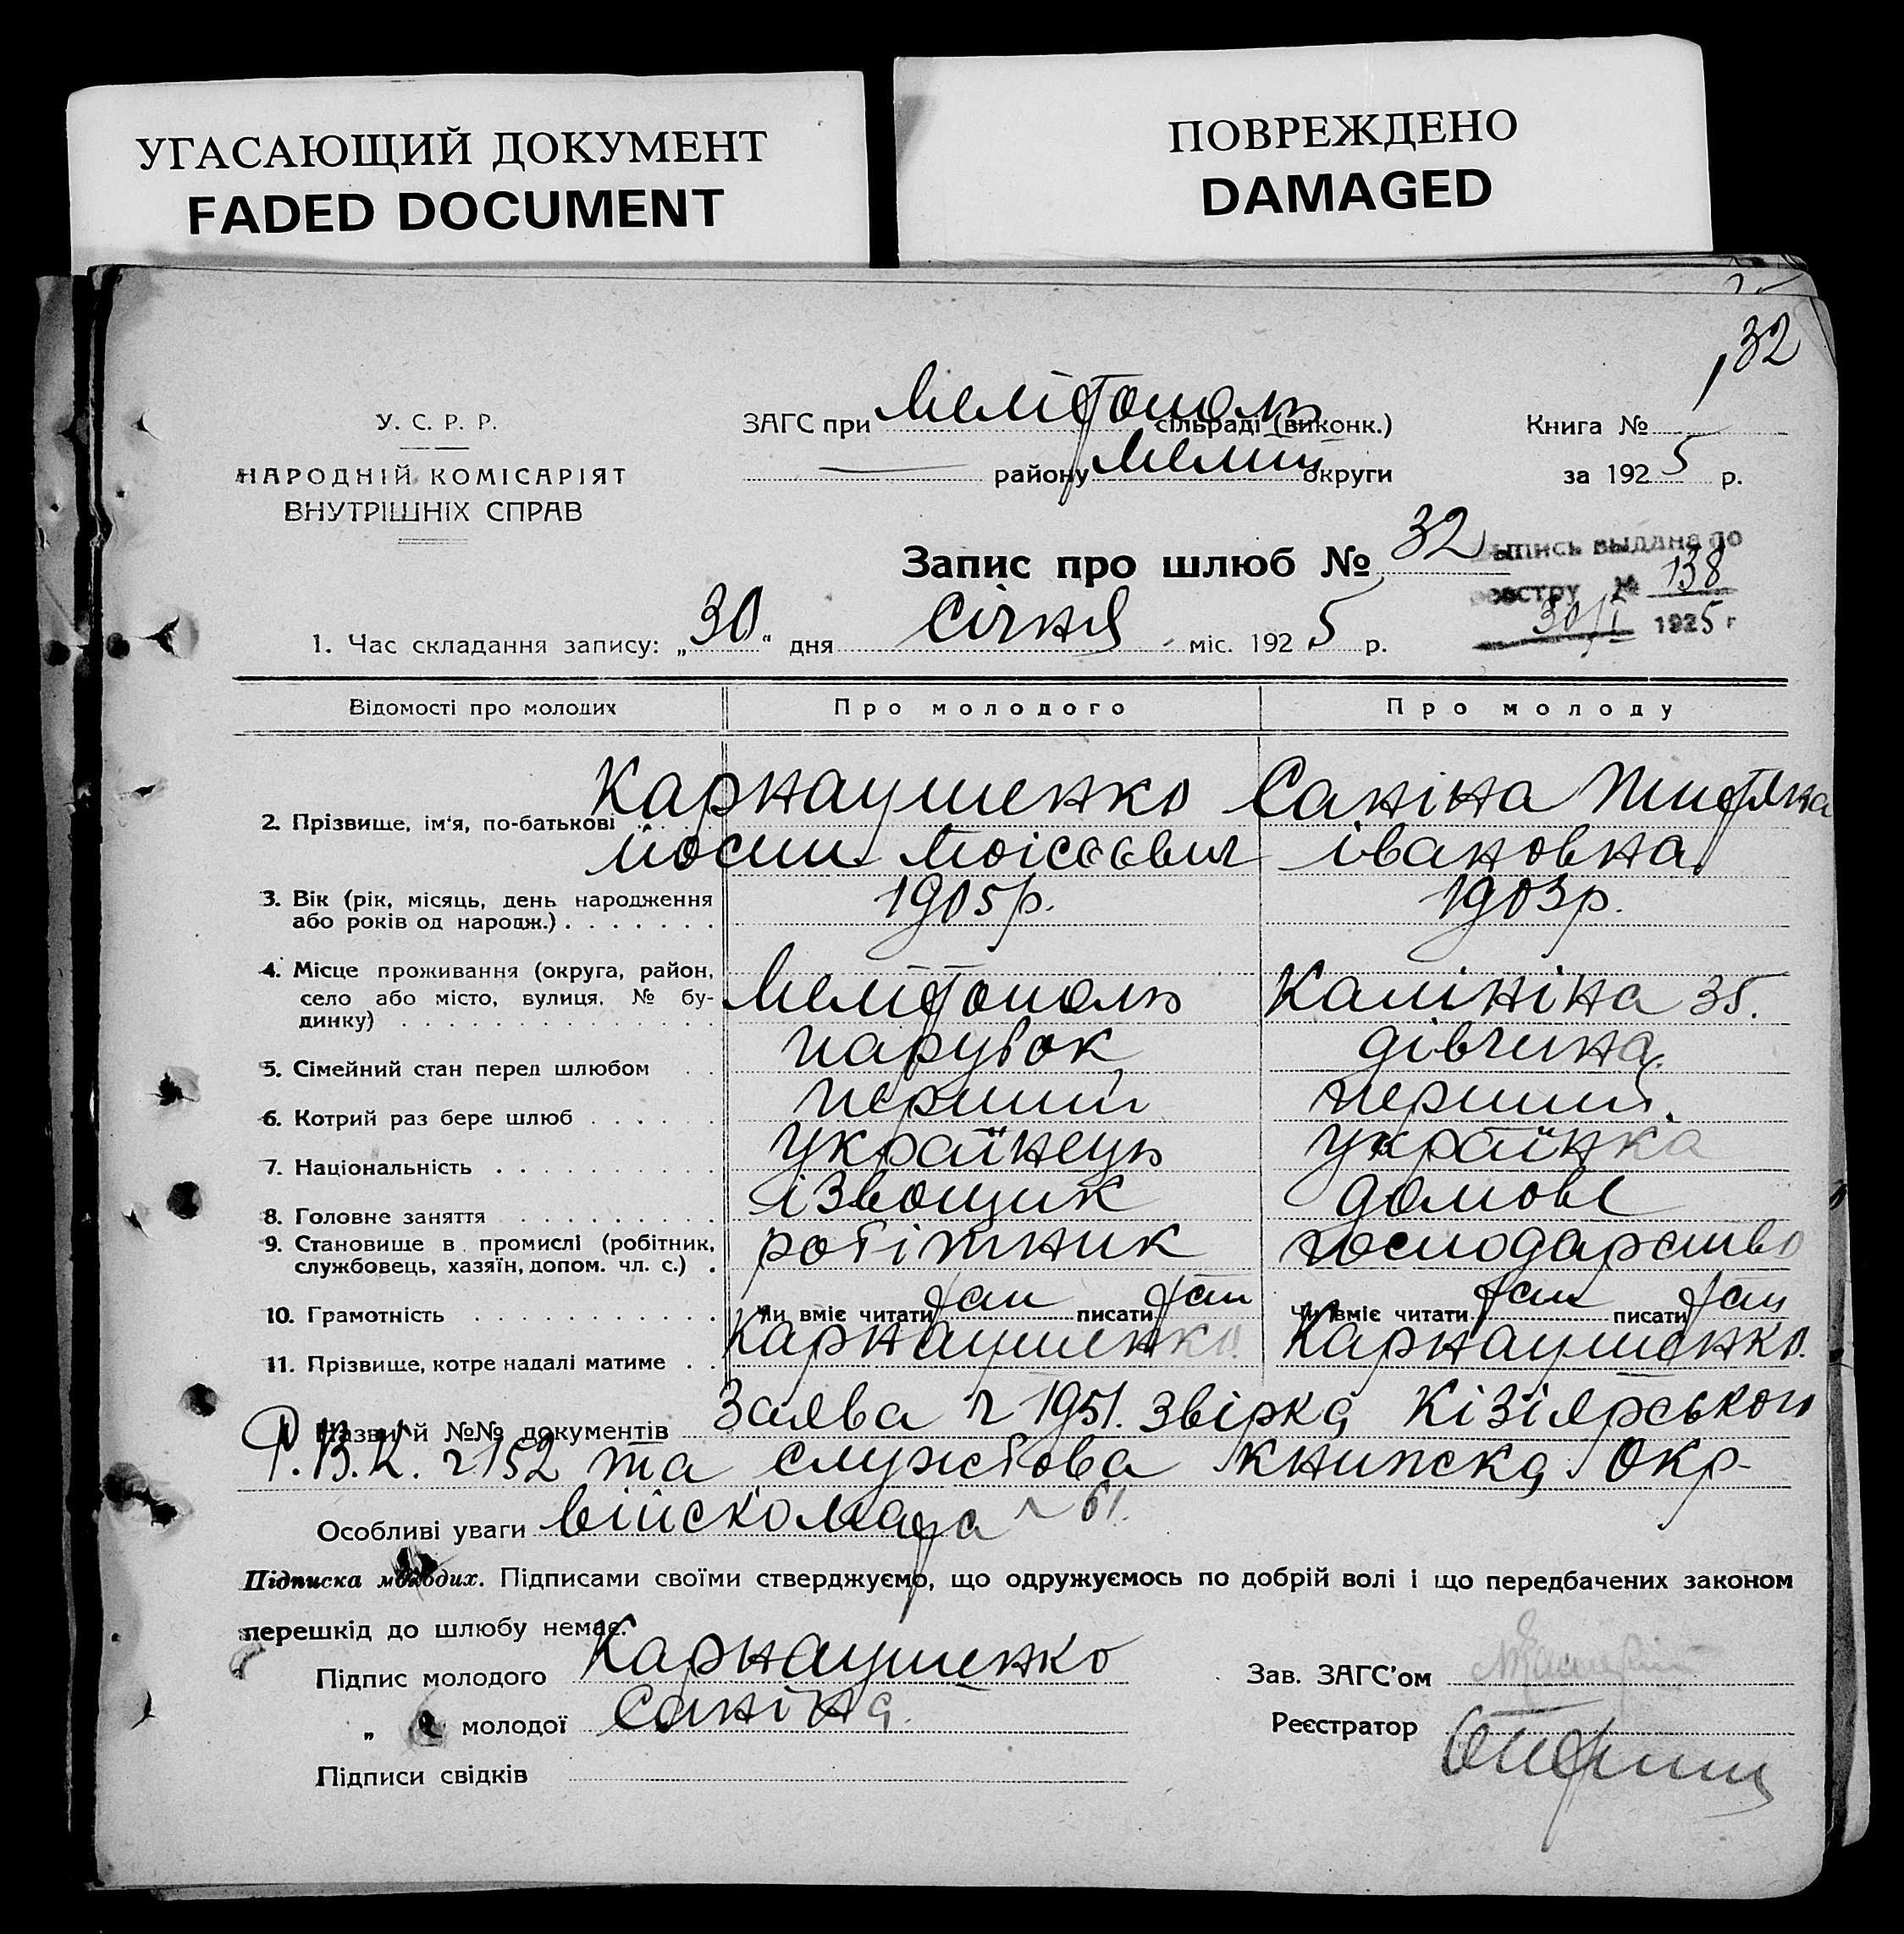 УГАСАЮЩИЙ ДОКУМЕНТ
FADED DOCUMENT
ПОВРЕЖДЕНО
DAMAGED
32
У. С. Р. Р.
НАРОДНІЙ КОМІСАРІЯТ
ВНУТРІШНІХ СПРАВ
ЗАГС при Мелітополь сільраді (виконк.)
району Меліт округи
Книга №
за 1925 р.
Запис про шлюб № 32
выпись выдана по
реестру № 138
30/I 1925 г
1. Час складання запису: „30" дня Січня міс. 1925 р.
Відомості про молодих Про молодого Про молоду
2. Прізвище, ім'я, по-батькові Карнаушенко Саніна
Йосип Моісеєвич івановна
3. Вік (рік, місяць, день народження 1905р. 1903р.
або років од народж.)
4. Місце проживання (округа, район,
село або місто, вулиця, № бу- Мелітополь Калініна 35.
динку)
5. Сімейний стан перед шлюбом парубок дівчина
6. Котрий раз бере шлюб перший перший.
7. Національність українець українка
8. Головне заняття ізвощик домове
9. Становище в промислі (робітник, робітник господарство
службовець, хазяїн, допом. чл. с.)
10. Грамотність Чи вміє читати так писати так Чи вміє читати так писати так
11. Прізвище, котре надалі матиме Карнаушенко Карнаушенко.
Назви й №№ документів Заява ч 1951. звірка Кізіярського
Р.В.К. ч 152 та службова книжка Окр-
Особливі уваги війскомата ч 61.
Підписка молодих. Підписами своїми стверджуємо, що одружуємось по добрій волі і що передбачених законом
перешкід до шлюбу немає.
Підпис молодого Карнаушенко
Зав. ЗАГС'ом
„ молодої Саніна.
Реєстратор
Підписи свідків